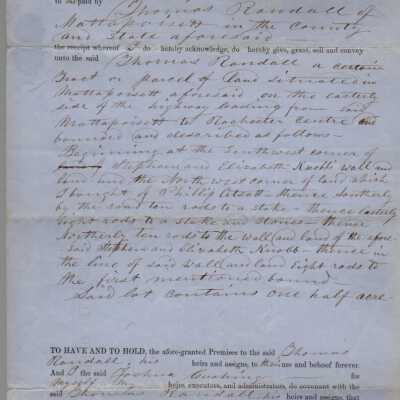 to me paid by Thomas Randall of
Mattapoisett in the county
and State aforesaid
the receipt whereof I do hereby acknowledge, do hereby give, grant, sell and convey
unto the said Thomas Randall a certain
tract or parcel of land situated in
Mattapoisett aforesaid on the easterly
side of the highway leading from said
Mattapoisett to Rochester Centre and
bounded and described as follows—
Beginning at the Southwest corner of
Stephen and Elizabeth wall and
land and the North west corner of land which
I bought of Phillip thence Southerly
by the road ten rods to a stake thence Easterly
Eight rods to a stake and stones thence
Northerly ten rods to the wall and land of the afore
said Stephen and Elizabeth thence in
the line of said wall and land Eight rods to
the first mentioned bound
Said lot contains one half acre
TO HAVE AND TO HOLD, the afore-granted Premises to the said Thomas
Randall, his heirs and assigns, to their use and behoof forever.
And I the said Joshua Cushing for
Myself My heirs, executors, and administrators, do covenant with the
said Thomas Randall, his heirs and assigns, that